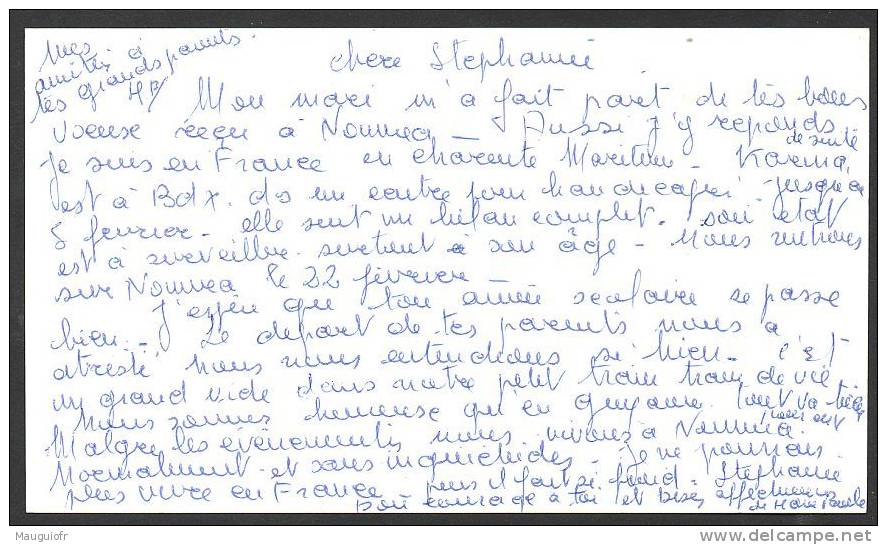 Mes
amitiés à
tes grands parents.
HP/
chere Stephanie
Mon mari m'a fait part de tes bons
voeux reçu à Noumea _ Aussi j'y reponds.
Je suis en France en Charente Maritime - Karema
de santé
est à Bdx. ds un centre pour handicapés jusqu'à
5 fevrier - elle subit un bilan complet. son état
est à surveiller surtout à son âge - Nous rentrons
sur Noumea le 22 février -
J'espère que ton année scolaire se passe
bien. - Le depart de tes parents nous a
atristé nous nous entendions si bien - c'est
un grand vide dans notre petit train train de vie
Nous sommes heureuse qu'en Guyane tout va bien
pour eut
Malgré les évènements nous vivons à Noumea
Normalment et sans inquietudes - Je ne pourrais
plus vivre en France - puis il fait si froid - Stephanie
Bon courage à toi et bises affectueuses
de Marie Paule
Mauguiofr
www.delcampe.net